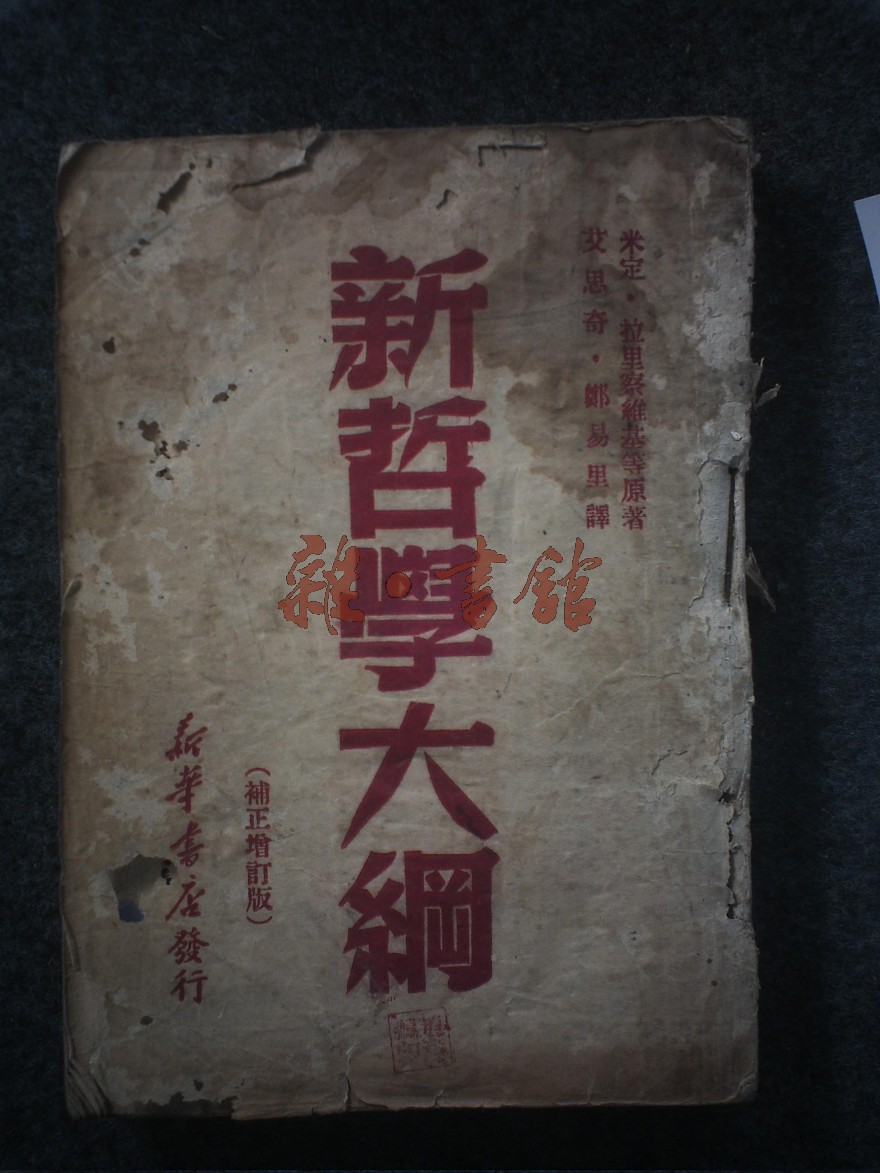 米定・拉里察維基等原著
艾思奇・鄭易里譯
新哲學大綱
（補正增訂版）
新華書店發行
雜・書館